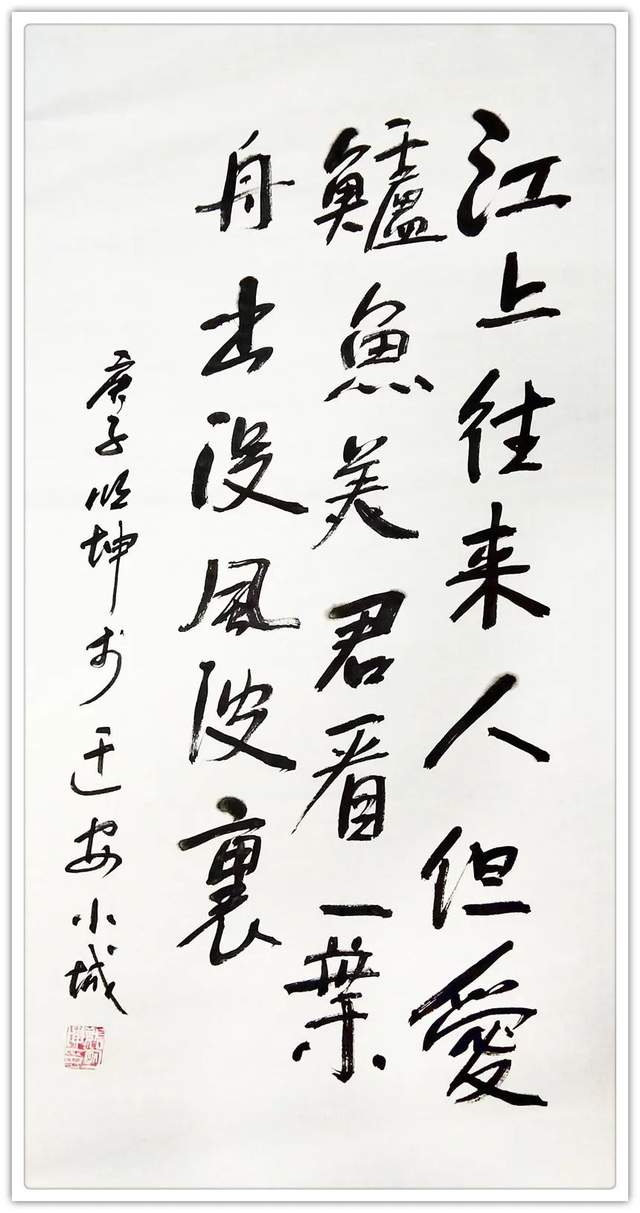 江上往来人但愛
鱸魚美君看一葉
舟出没風波裏
庚子順坤书于迁安小城